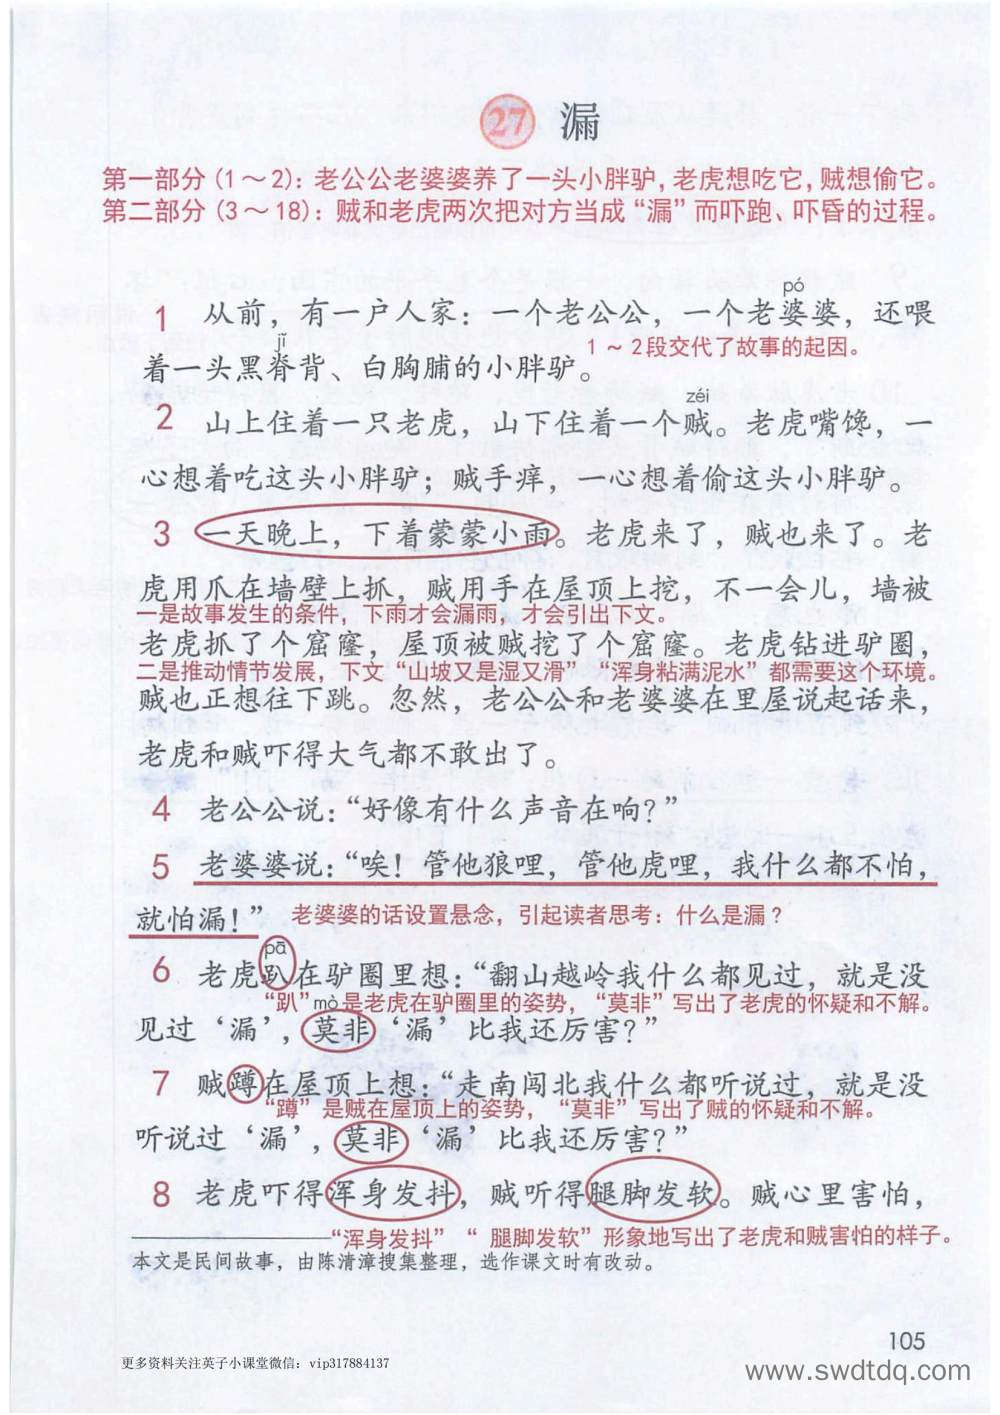 27 漏
第一部分(1～2):老公公老婆婆养了一头小胖驴,老虎想吃它,贼想偷它。
第二部分(3～18):贼和老虎两次把对方当成“漏”而吓跑、吓昏的过程。
pó
1 从前，有一户人家：一个老公公，一个老婆婆，还喂
1～2段交代了故事的起因。
jǐ
着一头黑脊背、白胸脯的小胖驴。
zéi
2 山上住着一只老虎，山下住着一个贼。老虎嘴馋，一
心想着吃这头小胖驴；贼手痒，一心想着偷这头小胖驴。
3 一天晚上，下着蒙蒙小雨。老虎来了，贼也来了。老
虎用爪在墙壁上抓，贼用手在屋顶上挖，不一会儿，墙被
一是故事发生的条件，下雨才会漏雨，才会引出下文。
老虎抓了个窟窿，屋顶被贼挖了个窟窿。老虎钻进驴圈，
二是推动情节发展，下文“山坡又是湿又滑”“浑身粘满泥水”都需要这个环境。
贼也正想往下跳。忽然，老公公和老婆婆在里屋说起话来，
老虎和贼吓得大气都不敢出了。
4 老公公说：“好像有什么声音在响？”
5 老婆婆说：“唉！管他狼哩，管他虎哩，我什么都不怕，
就怕漏！”
老婆婆的话设置悬念，引起读者思考：什么是漏？
pā
6 老虎趴在驴圈里想：“翻山越岭我什么都见过，就是没
“趴”是老虎在驴圈里的姿势，“莫非”写出了老虎的怀疑和不解。
mò
见过‘漏’，莫非‘漏’比我还厉害？”
7 贼蹲在屋顶上想：“走南闯北我什么都听说过，就是没
“蹲”是贼在屋顶上的姿势，“莫非”写出了贼的怀疑和不解。
听说过‘漏’，莫非‘漏’比我还厉害？”
8 老虎吓得浑身发抖，贼听得腿脚发软。贼心里害怕，
“浑身发抖”“ 腿脚发软”形象地写出了老虎和贼害怕的样子。
本文是民间故事，由陈清漳搜集整理，选作课文时有改动。
105
更多资料关注英子小课堂微信：vip317884137
www.swdtdq.com